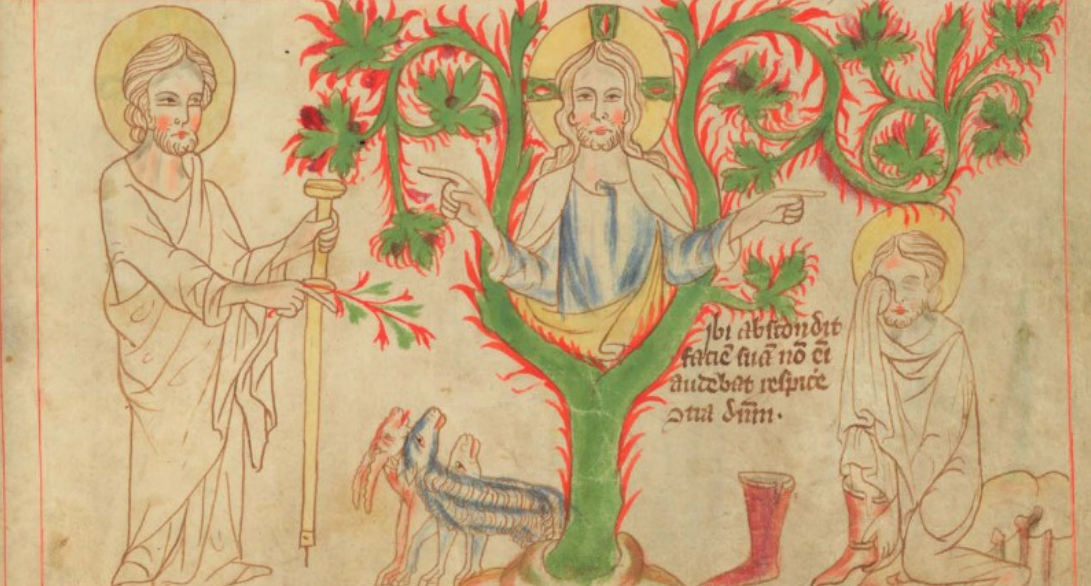 Ibi abscondit
faciē suā nō eī
audebat respicē
ꝯtra dūm.